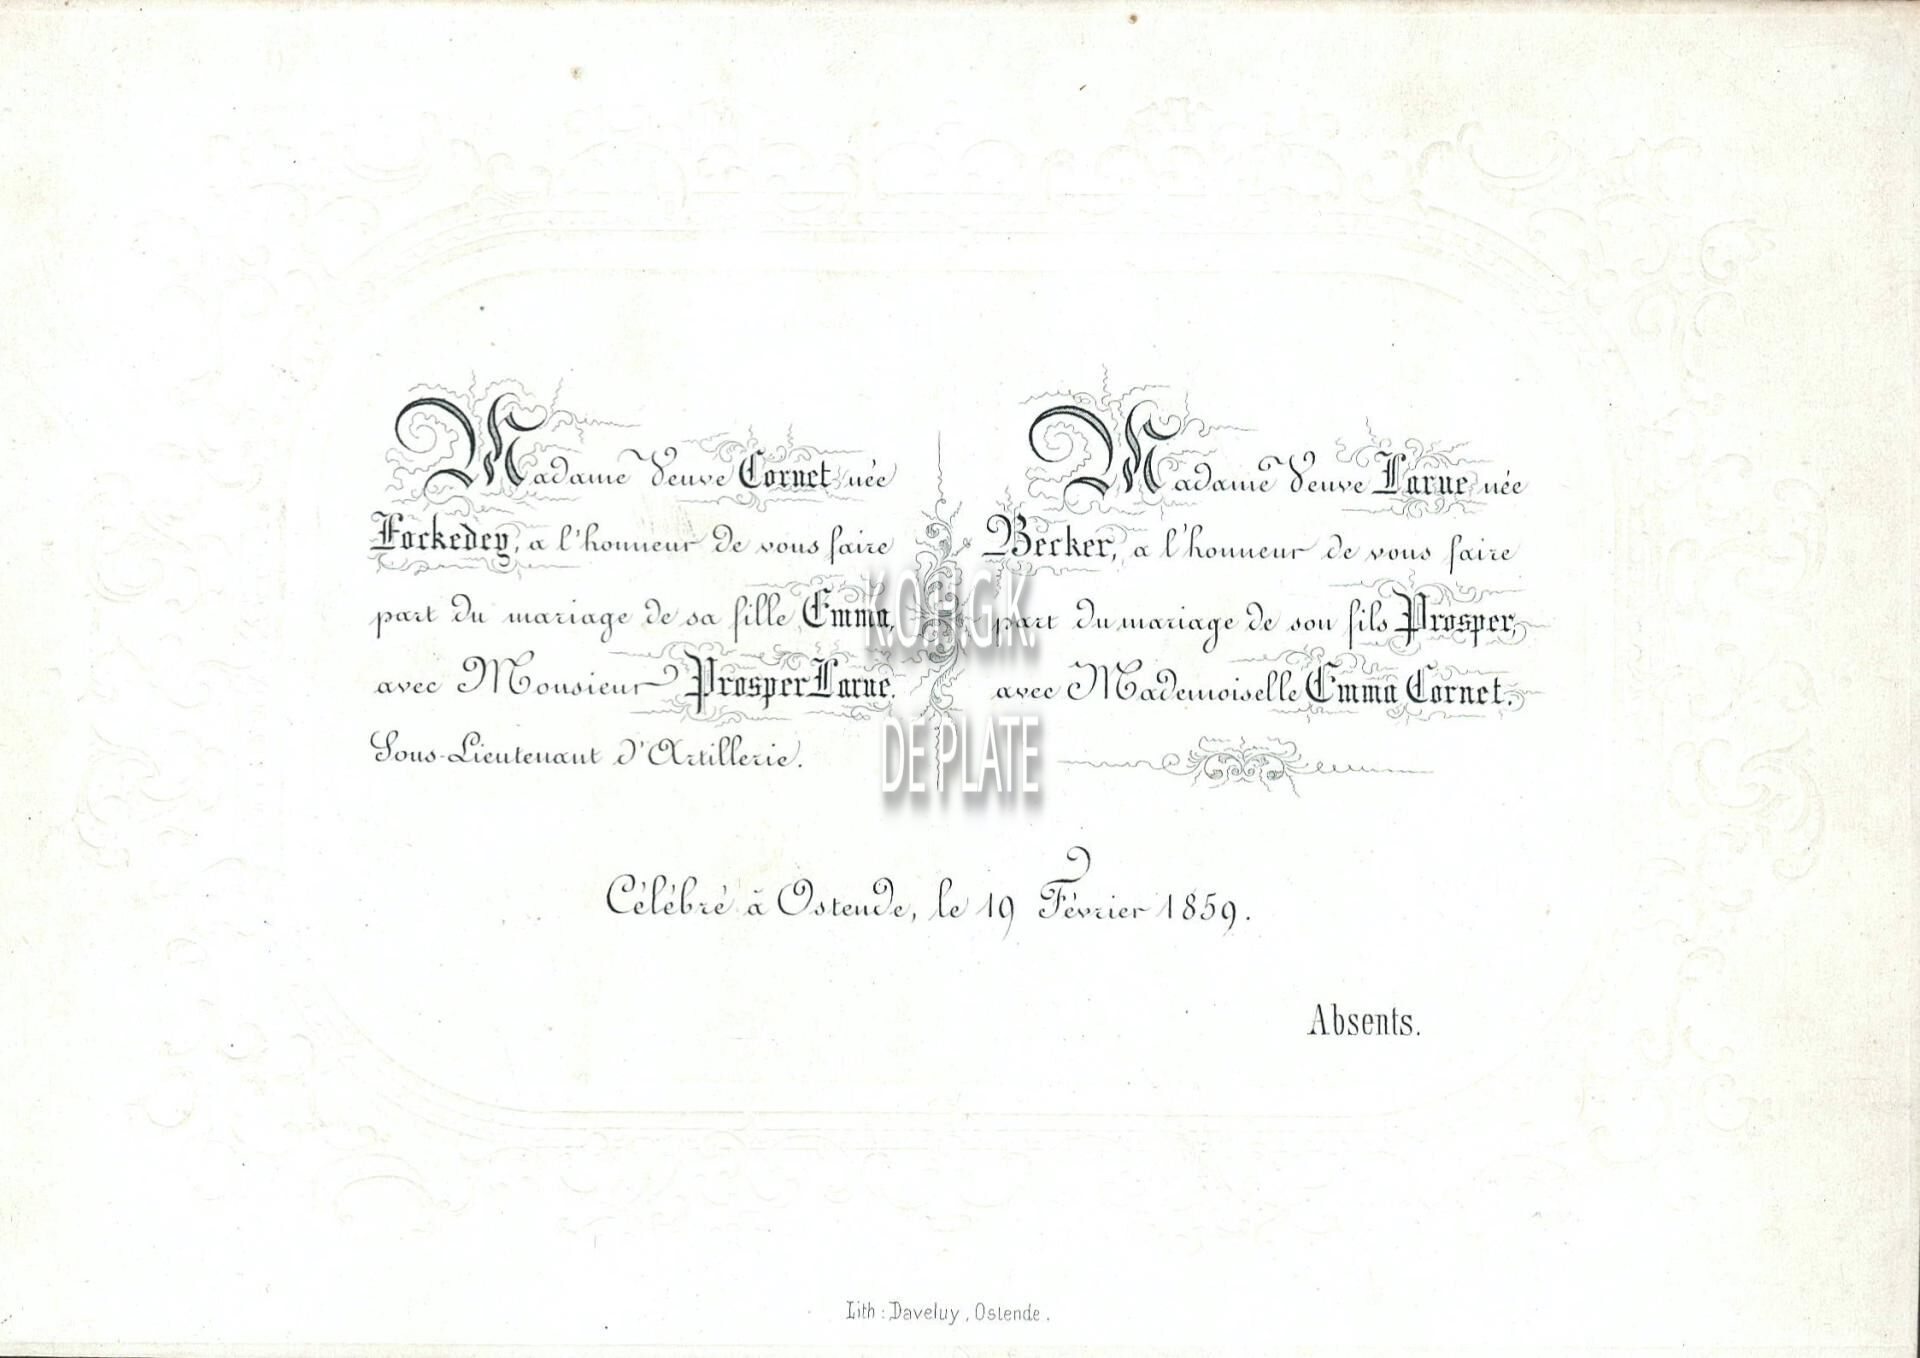 Madame Veuve Cornet née
Fockedey, a l'honneur de vous faire
part du mariage de sa fille Emma,
avec Monsieur Prosper Larue.
Sous-Lieutenant d'Artillerie.
Madame Veuve Larue née
Becker, a l'honneur de vous faire
part du mariage de son fils Prosper,
avec Mademoiselle Emma Cornet.
K.O.H.G.K.
DE PLATE
Célébré à Ostende, le 19 Février 1859.
Absents.
Lith : Daveluy, Ostende.